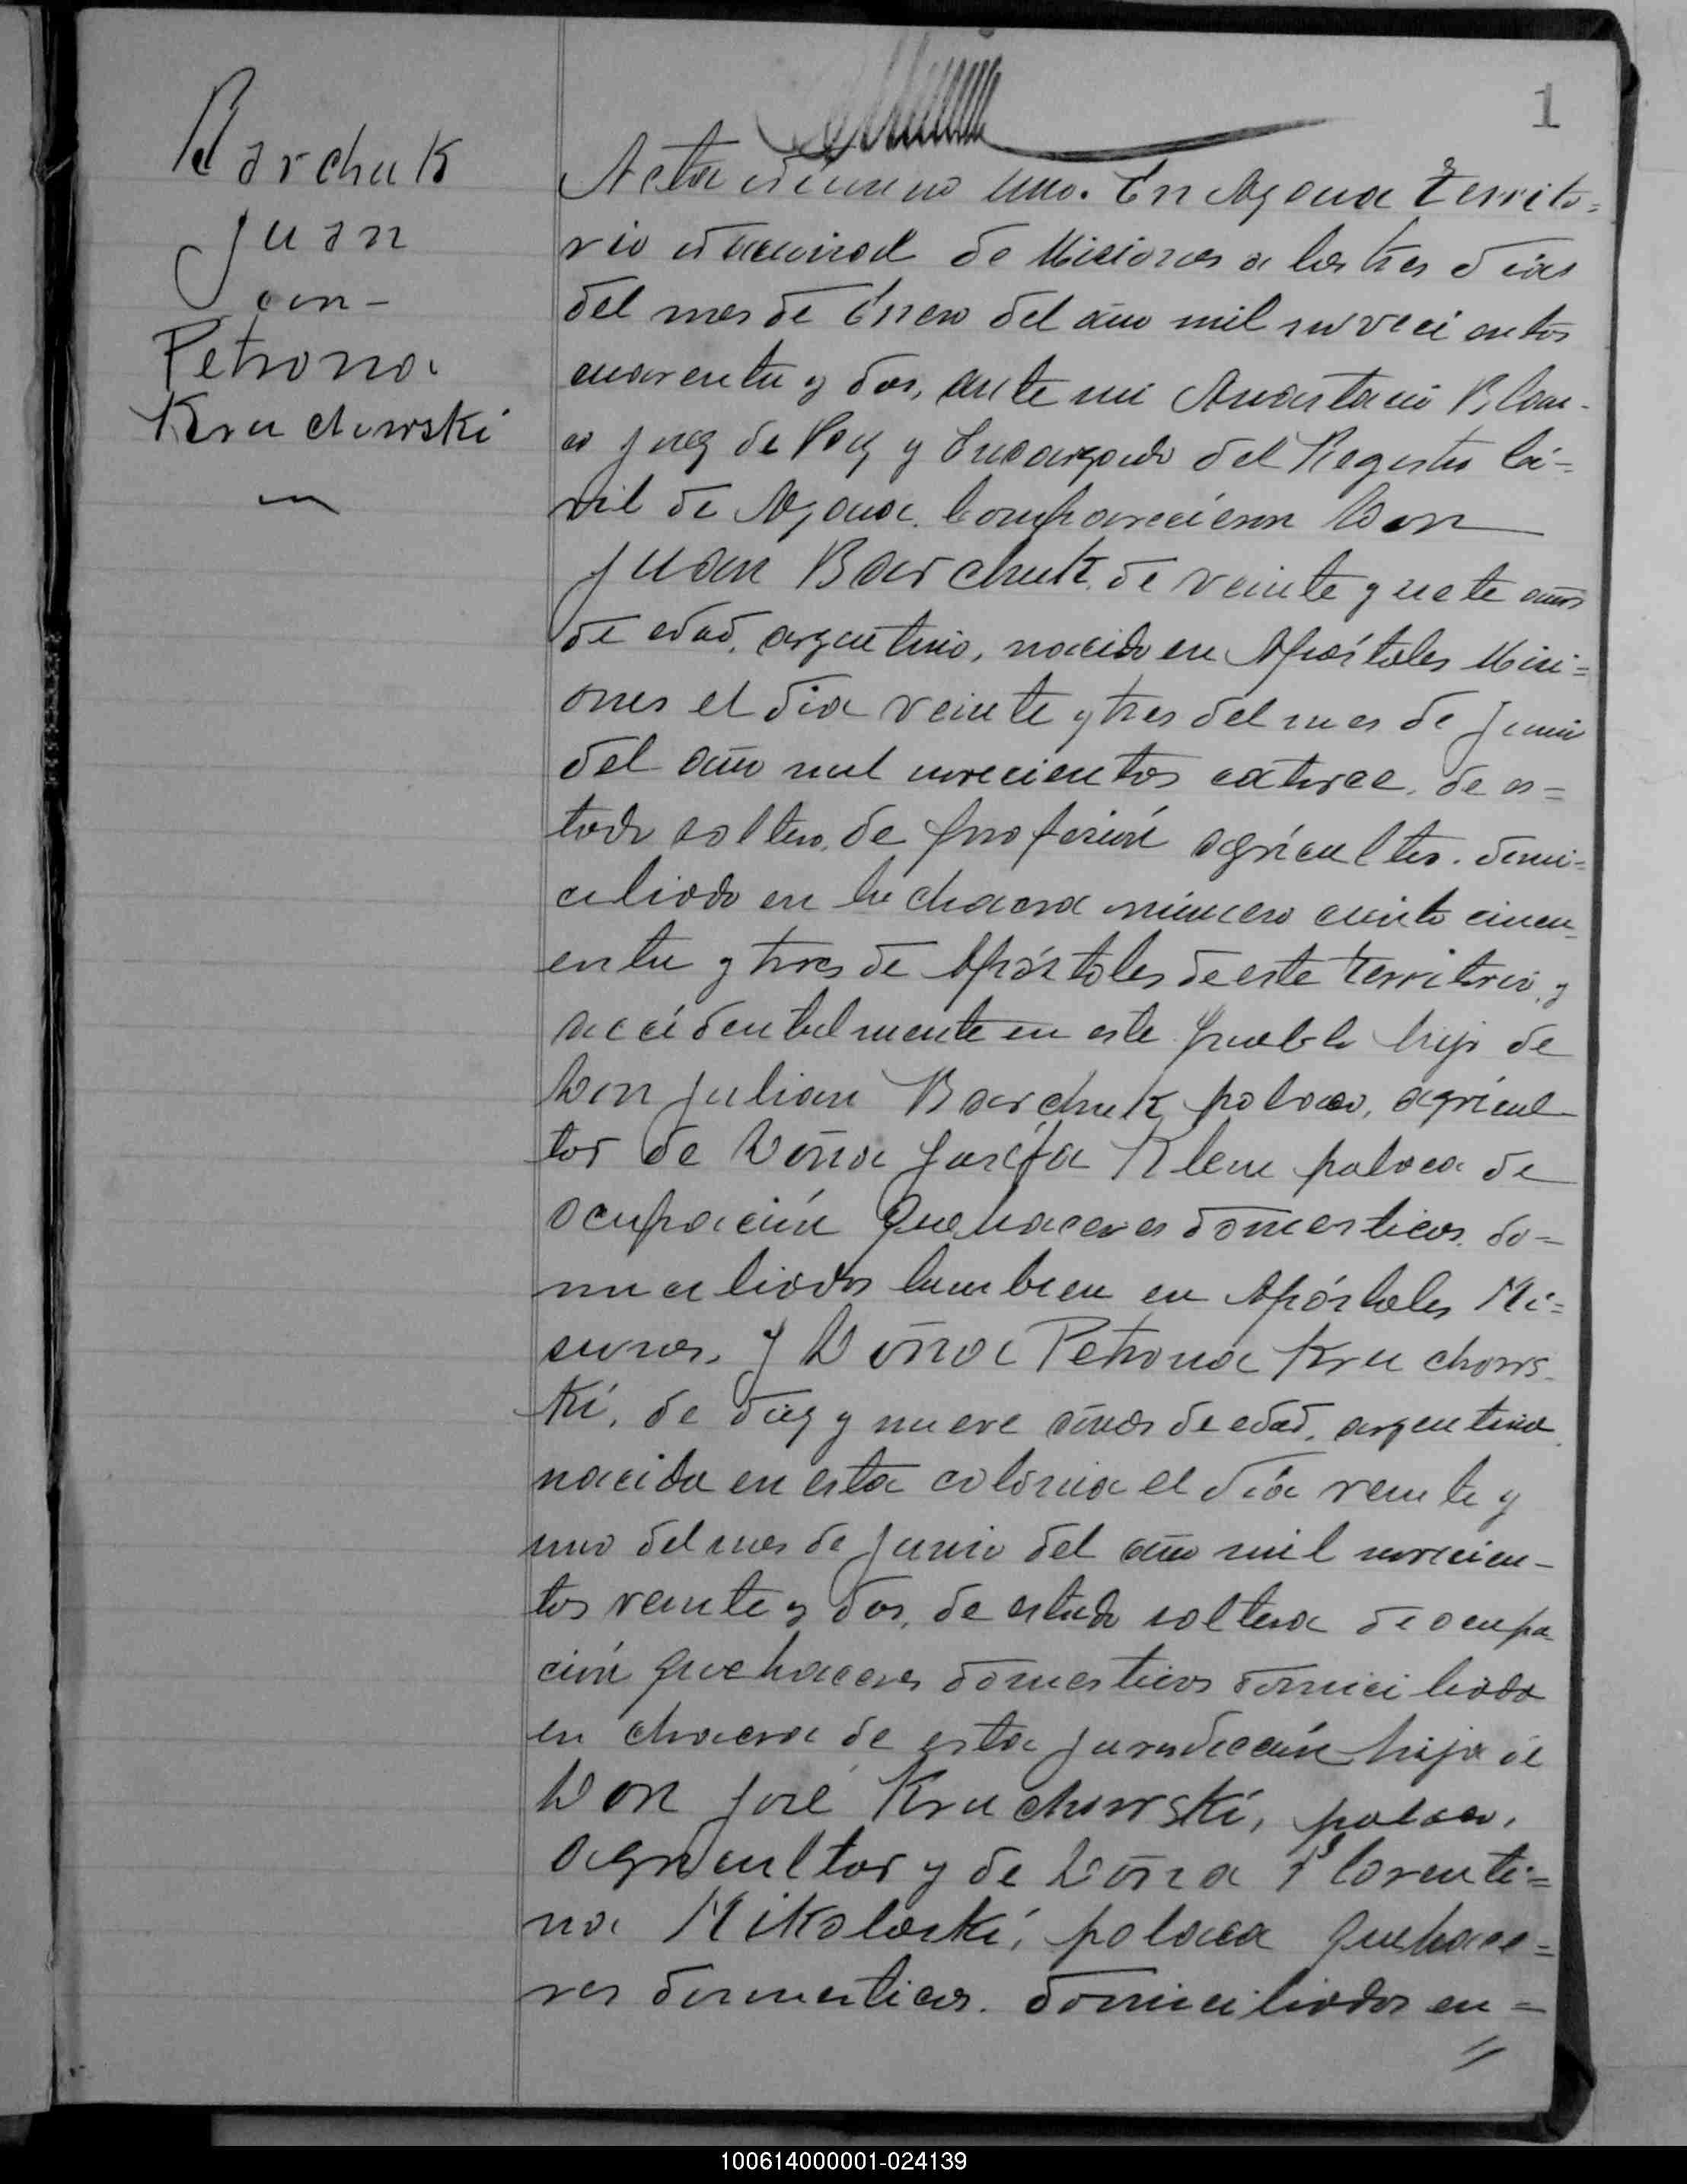 1
Barchuk
Juan
con-
Petrona
Kruchowski
Acta número uno. En Azara Territo=
rio Nacional de Misiones a los tres días
del mes de Enero del año mil novecientos
cuarenta y dos, ante mi Anastacio Blan-
co Juez de Paz y Encargado del Registro Ci=
vil de Azara. Comparecieron Don
Juan Barchuk, de veinte y siete años
de edad, argentino, nacido en Apóstoles Misi=
ones el día veinte y tres del mes de Junio
del año mil novecientos catorce, de es=
tado soltero, de profesión agricultor. domi=
ciliado en la chacra número ciento cincu
enta y tres de Apóstoles de este Territorio, y
accidentalmente en este pueblo hijo de
Don Julian Barchuk polaco, agricul
tor de Doña Josefa Klem polaca de
ocupación quehaceres domesticos. do=
miciliados tambien en Apóstoles Mi=
siones. Y Doña Petrona Kruchows-
ki, de diez y nueve años de edad, argentina,
nacida en esta colonia el día veinte y
uno del mes de Junio del año mil novecien-
tos veinte y dos, de estado soltera de ocupa
ción quehaceres domesticos domiciliada
en chacra de esta jurisdicción hija de
Don José Kruchowski, polaco,
agricultor y de Doña Florenti=
na Mikoloski, polaca quehace=
res domesticos. domiciliados en=
//
100614000001-024139